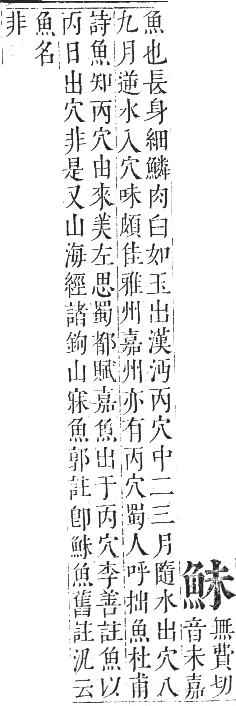 鮇
無費切
音未嘉
魚也長身細鱗肉白如玉出漢沔丙穴中二三月隨水出穴八
九月逆水入穴味頗佳雅州嘉州亦有丙穴蜀人呼拙魚杜甫
詩魚知丙穴由來美左思蜀都賦嘉魚出于丙穴李善註魚以
丙日出穴非是又山海經諸鉤山寐魚郭註卽鮇魚舊註汎云
魚名
非